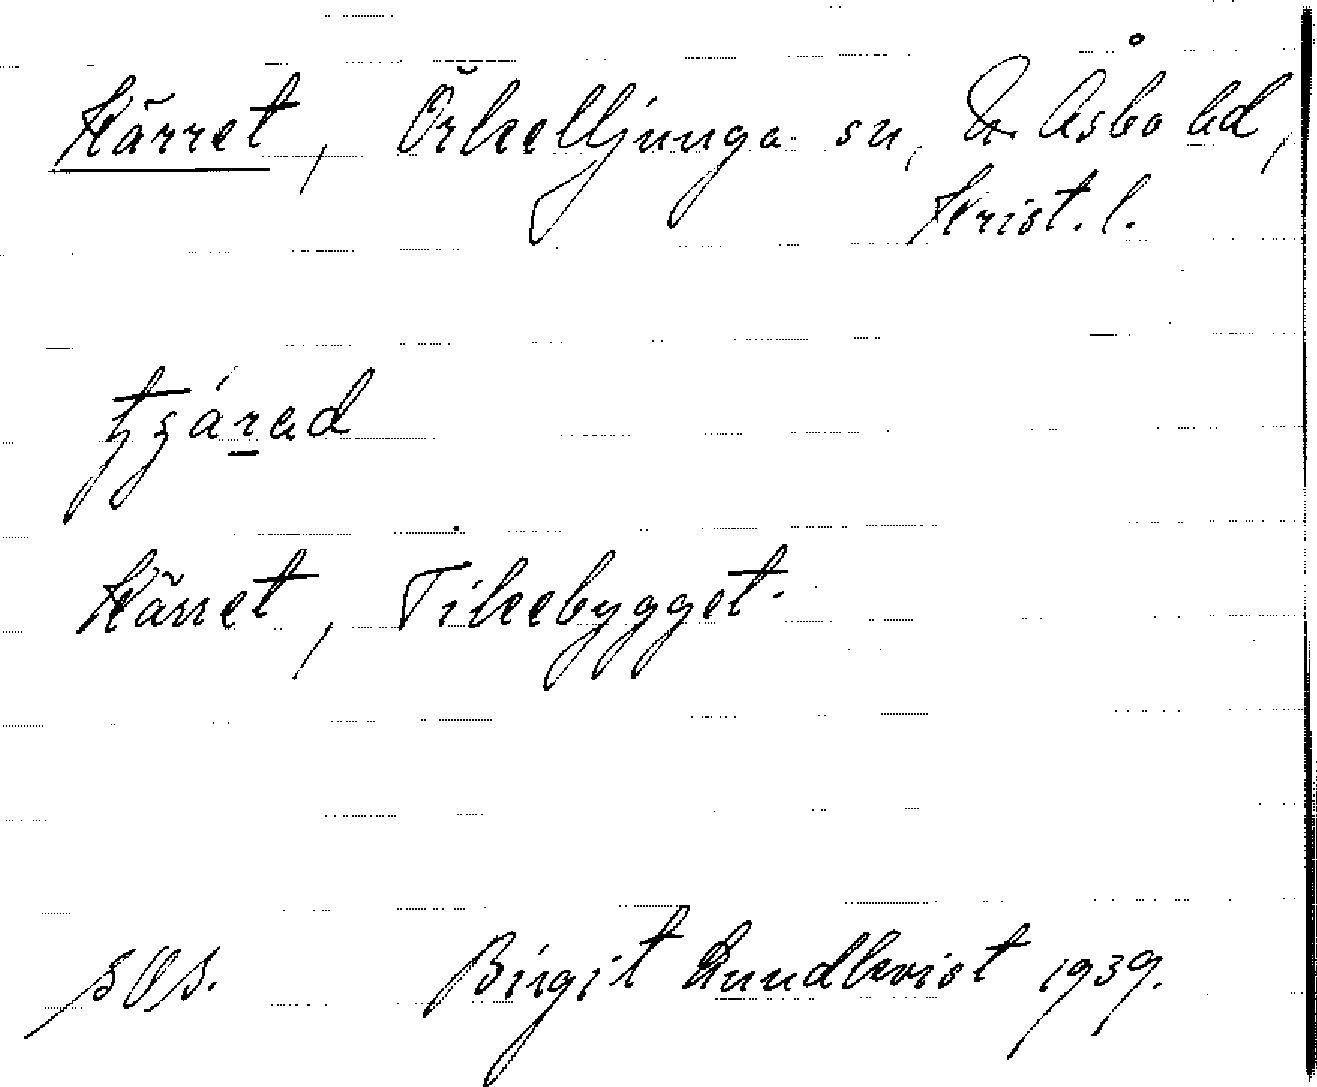 Kärret, Örkelljunga sn, N. Åsbo hd,
Krist. l.
Kärret, Tikebygget.
SOS. Birgit Lundkvist 1939.